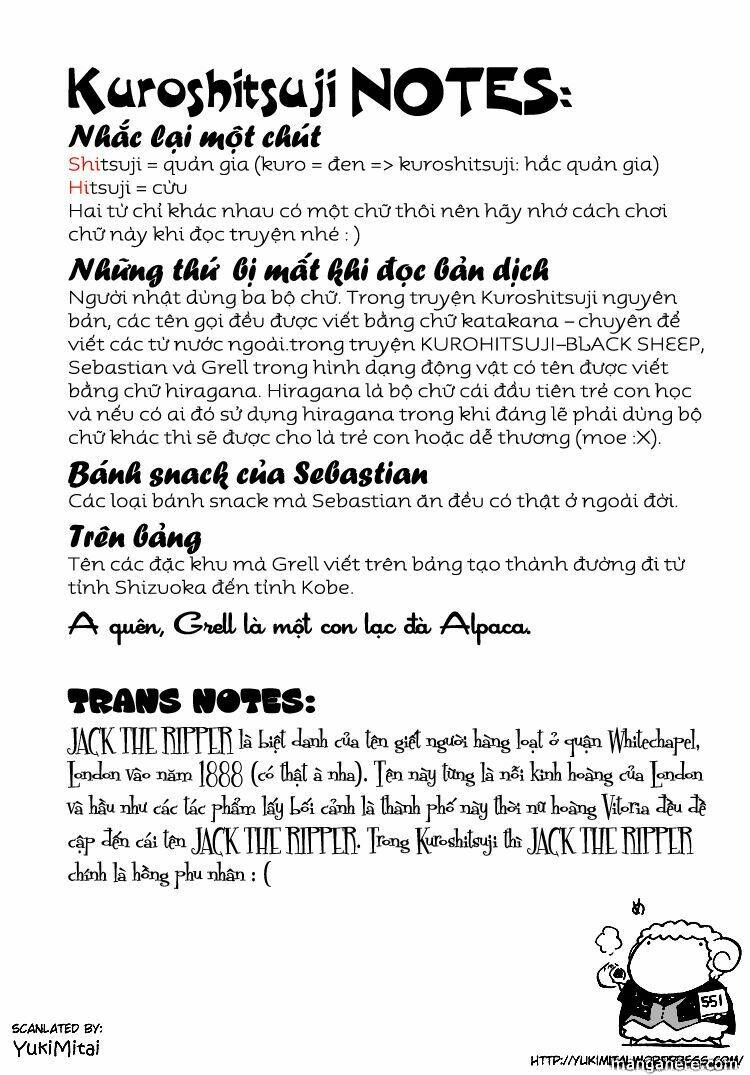 Kuroshitsuji NOTES:
Nhắc lại một chút
Shitsuji = quản gia (kuro = đen => kuroshitsuji: hắc quản gia)
Hitsuji = cừu
Hai từ chỉ khác nhau có một chữ thôi nên hãy nhớ cách chơi
chữ này khi đọc truyện nhé : )
Những thứ bị mất khi đọc bản dịch
Người nhật dùng ba bộ chữ. Trong truyện Kuroshitsuji nguyên
bản, các tên gọi đều được viết bằng chữ katakana – chuyên để
viết các từ nước ngoài.trong truyện KUROHITSUJI–BLACK SHEEP,
Sebastian và Grell trong hình dạng động vật có tên được viết
bằng chữ hiragana. Hiragana là bộ chữ cái đầu tiên trẻ con học
và nếu có ai đó sử dụng hiragana trong khi đáng lẽ phải dùng bộ
chữ khác thì sẽ được cho là trẻ con hoặc dễ thương (moe :X).
Bánh snack của Sebastian
Các loại bánh snack mà Sebastian ăn đều có thật ở ngoài đời.
Trên bảng
Tên các đặc khu mà Grell viết trên bảng tạo thành đường đi từ
tỉnh Shizuoka đến tỉnh Kobe.
A quên, Grell là một con lạc đà Alpaca.
TRANS NOTES:
JACK THE RIPPER là biệt danh của tên giết người hàng loạt ở quận Whitechapel,
London vào năm 1888 (có thật à nha). Tên này từng là nỗi kinh hoàng của London
và hầu như các tác phẩm lấy bối cảnh là thành phố này thời nữ hoàng Vitoria đều đề
cập đến cái tên JACK THE RIPPER. Trong Kuroshitsuji thì JACK THE RIPPER
chính là hồng phu nhân : (
め
551
SCANLATED BY:
YukiMitai
HTTP://YUKIMITAI.WORDPRESS.COM/
mangahere.com